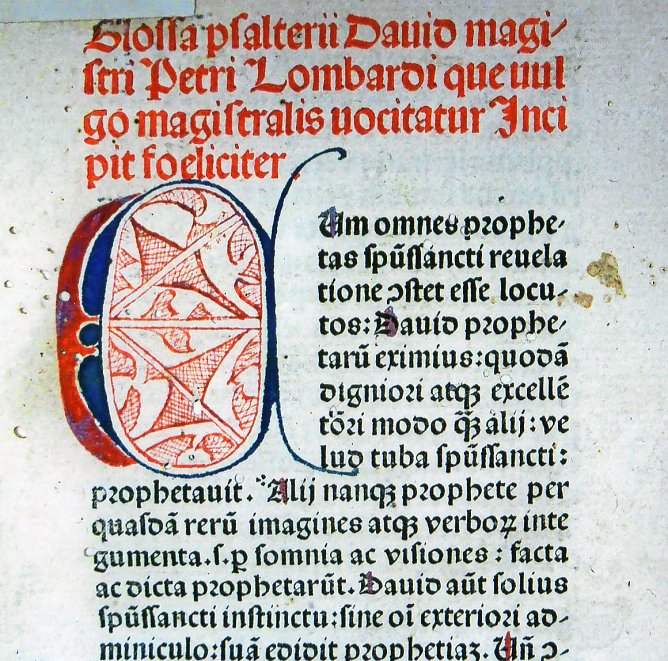 Glossa psalterii Dauid magi-
stri Petri Lombardi que uul
go magistralis uocitatur Inci
pit foeliciter.
CUm omnes prophe-
tas spūssancti reuela
tione ↄstet esse locu-
tos: Dauid prophe-
tarū eximius: quodā
digniori atqꝫ excellē
tōri modo q̄ꝫ alij: ve
lud tuba spūssancti:
prophetauit. Alij nanqꝫ prophete per
quasdā rerū imagines atqꝫ verboꝝ inte
gumenta.s.ꝑ somnia ac visiones: facta
ac dicta prophetarūt. Dauid aūt solius
spūssancti instinctu: sine oī exteriori ad-
miniculo: suā edidit prophetiaꝫ. Un̄ ↄ-